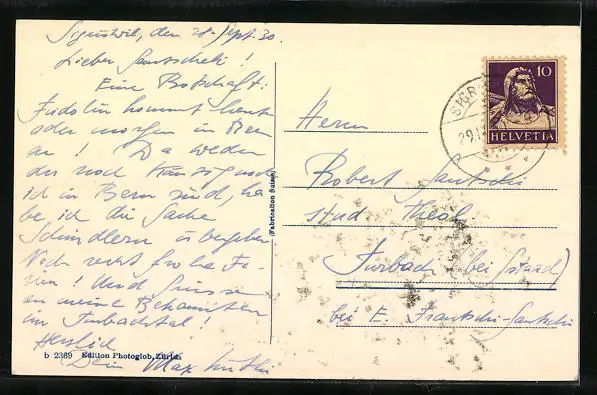 Sigriswil, den 28. Sept. 30.
Lieber Sautscheli!
Eine Botschaft:
Fridolin kommt heute
oder morgen in Bern
an! Da weder
du noch ich
in Bern sind, ha-
be ich die Sache
Schindlern übergeben
Noch recht frohe Fe-
rien! Und Grüsse
an meine Bekannten
im Turbachtal!
Herzlich
Dein Max
b 2369 Edition Photoglob, Zürich
(Fabrication Suisse)
10
HELVETIA
SIGR
Herrn
Robert
stud. theol.
Turbach (bei Gstaad)
bei E. Frautschi-